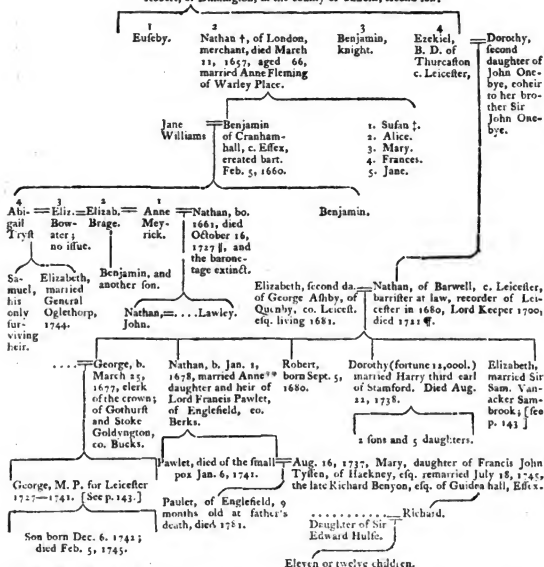 1
Eufeby.
2
Nathan †, of London,
merchant, died March
11, 1657, aged 66,
married Anne Fleming
of Warley Place.
3
Benjamin,
knight.
4
Ezekiel,
B. D. of
Thurcaſton
c. Leiceſter,
Dorothy,
ſecond
daughter of
John One-
bye, coheir
to her bro-
ther Sir
John One-
bye.
Jane
Williams
Benjamin
of Cranham-
hall, c. Eſſex,
created bart.
Feb. 5, 1660.
1. Suſan ‡.
2. Alice.
3. Mary.
4. Frances.
5. Jane.
4
Abi-
gail
Tryſt
3
Eliz.
Bow-
ater;
no iſſue.
2
Elizab.
Brage.
1
Anne
Mey-
rick.
Nathan, bo.
1661, died
October 16,
1727 ||, and
the barone-
tage extinct.
Benjamin.
Sa-
muel,
his
only
ſur-
viving
heir.
Elizabeth,
married
General
Oglethorp,
1744.
Benjamin, and
another ſon.
Nathan, = .... Lawley.
John.
Elizabeth, ſecond da.
of George Aſhby, of
Quenby, co. Leiceſt.
eſq. living 1681.
Nathan, of Barwell, c. Leiceſter,
barriſter at law, recorder of Lei-
ceſter in 1680, Lord Keeper 1700,
died 1721 ¶.
..... George, b.
March 25,
1677, clerk
of the crown;
of Gothurſt
and Stoke
Goldyngton,
co. Bucks.
Nathan, b. Jan. 1,
1678, married Anne**
daughter and heir of
Lord Francis Pawlet,
of Englefield, co.
Berks.
Robert,
born Sept. 5,
1680.
Dorothy (fortune 12,000l.)
married Harry third earl
of Stamford. Died Aug.
22, 1738.
Elizabeth,
married Sir
Sam. Van-
acker Sam-
brook; [ſee
p. 143]
2 ſons and 5 daughters.
George, M. P. for Leiceſter
1727—1741. [See p. 143.]
Pawlet, died of the ſmall
pox Jan. 6, 1741.
Aug. 16, 1737, Mary, daughter of Francis John
Tyſſen, of Hackney, eſq. remarried July 18, 1745,
the late Richard Benyon, eſq. of Guidea hall, Eſſex.
Paulet, of Englefield, 9
months old at father's
death, died 1781.
Son born Dec. 6. 1742;
died Feb. 5, 1745.
......... Richard.
Daughter of Sir
Edward Hulſe.
Eleven or twelve children.